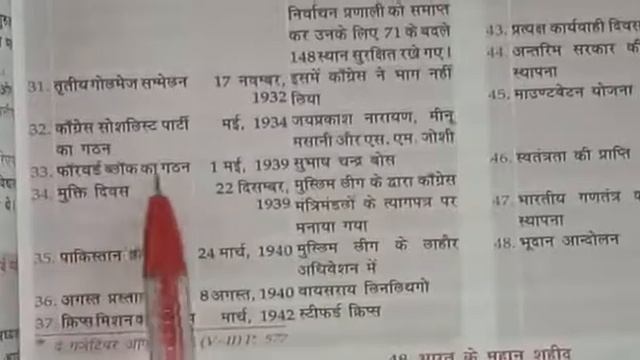 निर्वाचन प्रणाली को समाप्त
कर उनके लिए 71 के बदले
148 स्थान सुरक्षित रखे गए।
31. तृतीय गोलमेज सम्मेलन 17 नवम्बर, इसमें काँग्रेस ने भाग नहीं
1932 लिया
32. काँग्रेस सोशलिस्ट पार्टी मई, 1934 जयप्रकाश नारायण, मीनू
का गठन मसानी और एस. एम. जोशी
33. फॉरवर्ड ब्लॉक का गठन 1 मई, 1939 सुभाष चन्द्र बोस
34. मुक्ति दिवस 22 दिसम्बर, मुस्लिम लीग के द्वारा काँग्रेस
1939 मंत्रिमंडलों के त्यागपत्र पर
मनाया गया
35. पाकिस्तान 24 मार्च, 1940 मुस्लिम लीग के लाहौर
अधिवेशन में
36. अगस्त प्रस्ता 8 अगस्त, 1940 वायसराय लिनलिथगो
37. क्रिप्स मिशन मार्च, 1942 स्टीफर्ड क्रिप्स
* द गजेटियर ऑफ (V-II) P. 577
43. प्रत्यक्ष कार्यवाही दिवस
44. अन्तरिम सरकार की
स्थापना
45. माउण्टबेटन योजना
46. स्वतंत्रता की प्राप्ति
47. भारतीय गणतंत्र
स्थापना
48. भूदान आन्दोलन
48 भारत के महान शहीद